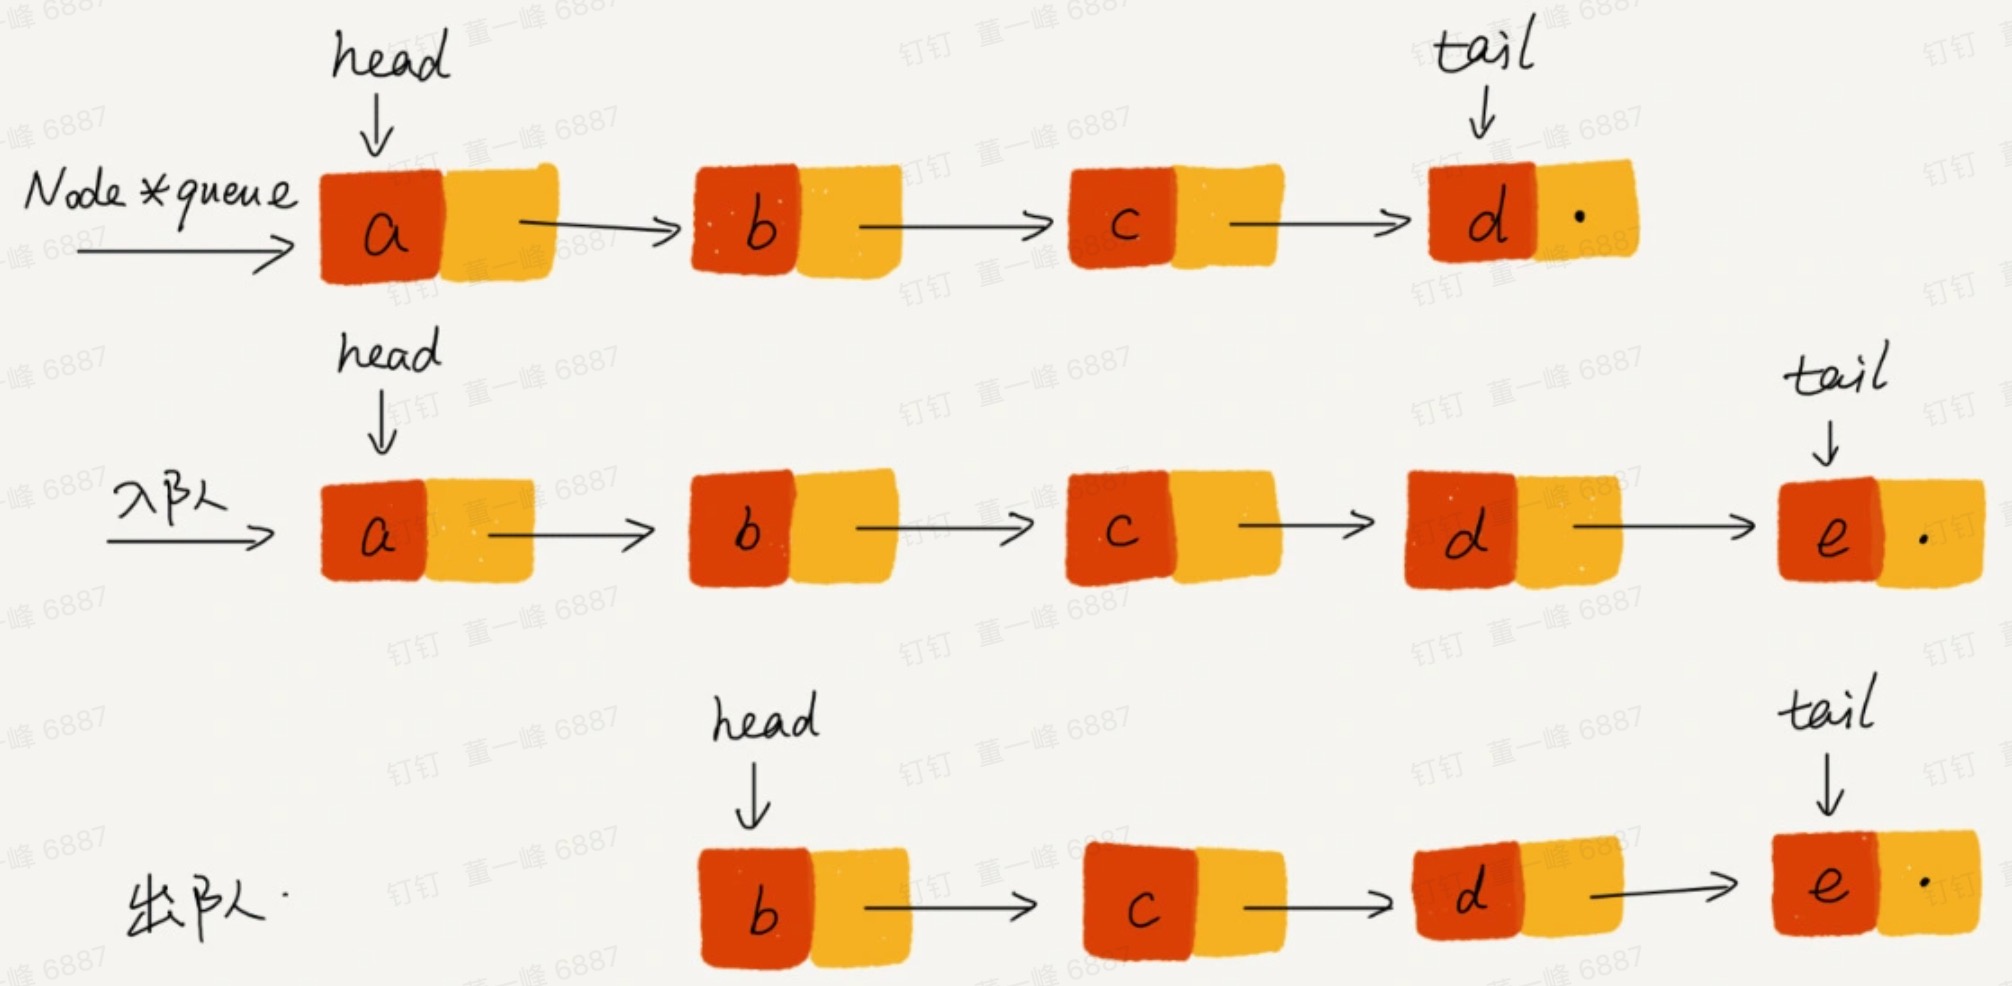 head
tail
Node *queue
a
b
c
d
head
tail
入队
a
b
c
d
e
head
tail
出队
b
c
d
e
钉钉 董一峰 6887